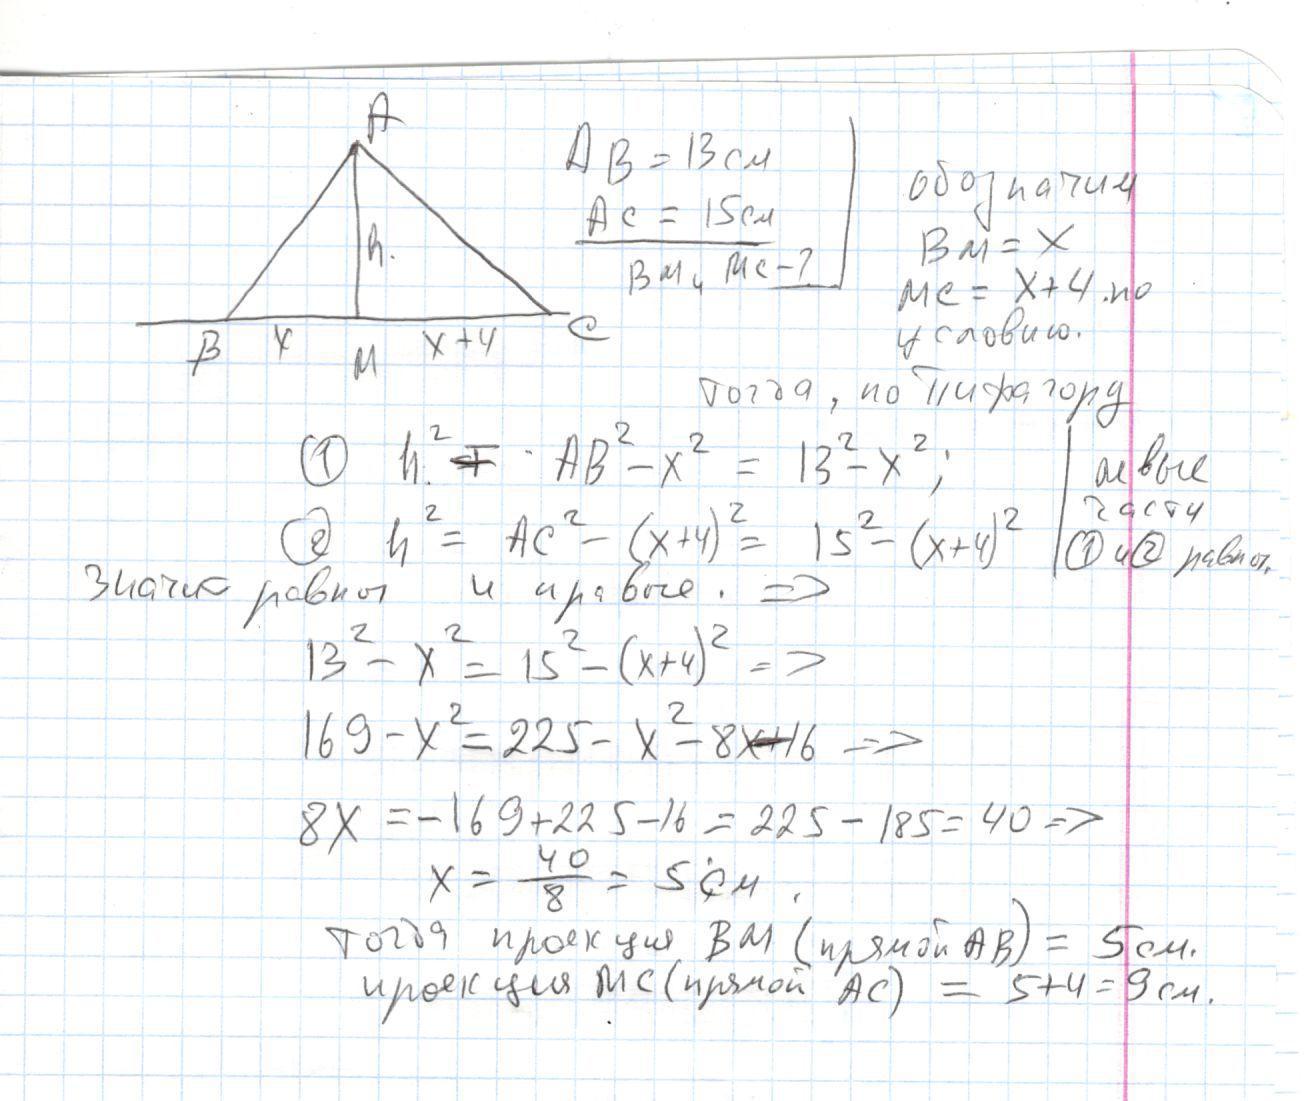 A
h.
B x M x+4 C
AB = 13см
AC = 15см
BM, MC - ?
обозначим
BM = x
MC = x+4 . по
условию.
тогда, по Пифагору
① h² = AB² - x² = 13² - x²;
② h² = AC² - (x+4)² = 15² - (x+4)²
левые
части
① и ② равны.
Значит равны и правые. =>
13² - x² = 15² - (x+4)² =>
169 - x² = 225 - x² - 8x - 16 =>
8x = -169 + 225 - 16 = 225 - 185 = 40 =>
x = 40/8 = 5 см.
тогда проекция BM (прямой AB) = 5см.
проекция MC (прямой AC) = 5+4 = 9см.